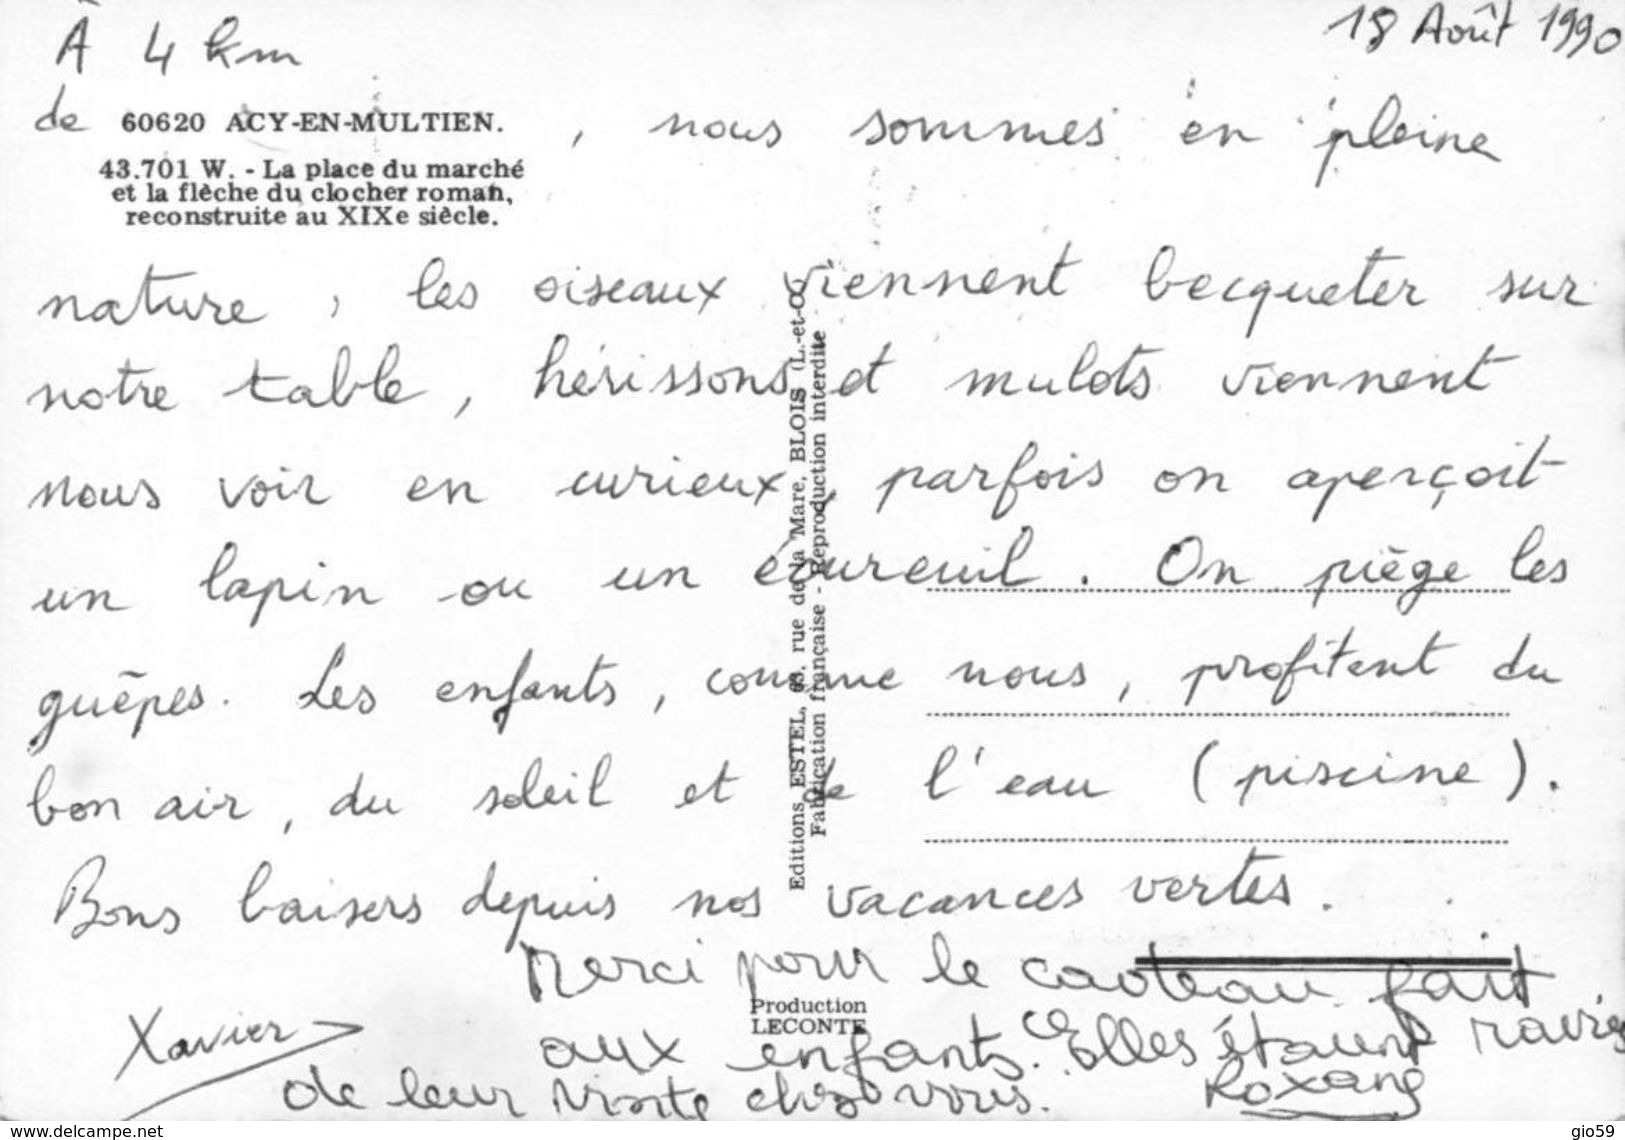 18 Août 1990
À 4 km
de 60620 ACY-EN-MULTIEN. , nous sommes en pleine
43.701 W. - La place du marché
et la flèche du clocher roman,
reconstruite au XIXe siècle.
nature, les oiseaux viennent becqueter sur
notre table, hérissons et mulots viennent
nous voir en curieux, parfois on aperçoit
un lapin ou un écureuil. On piège les
guêpes. Les enfants, comme nous, profitent du
bon air, du soleil et de l'eau (piscine).
Bons baisers depuis nos vacances vertes.
Merci pour le cadeau fait
aux enfants. Elles étaient ravies
de leur visite chez vous.
Xavier
Roxane
Editions ESTEL, rue de la Mare, BLOIS (L.-et-C.)
Fabrication française - Reproduction interdite
Production
LECONTE
www.delcampe.net
gio59